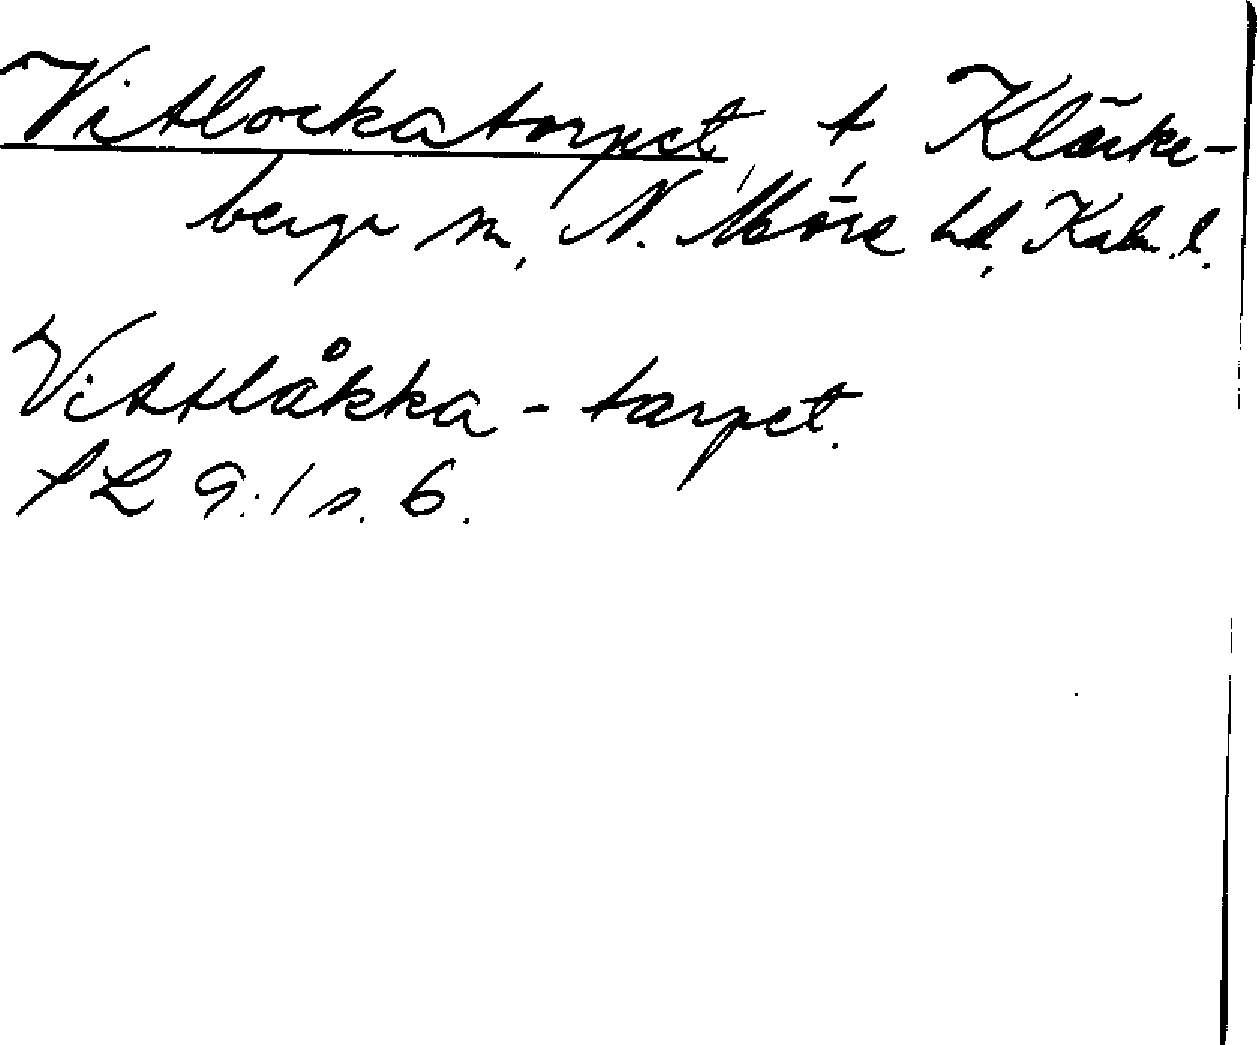 Vitlockatorpet, t, Kläcke-
berga sn, N. Möre hd, Kalm. l.
Vittlåkka-tarpet.
SL 9:1 s. 6.